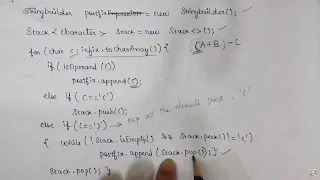 Stringbuilder postfix Expression = new Stringbuilder();
Stack <character> Stack = new Stack<>();
for (char c : infix.toCharArray()) { (A+B) - C
if (isOperand (c))
postfix.append(c);
else if (c=='(')
Stack.push(c);
else if (c==')') → pop all the elements '('
{ while (!Stack.isEmpty() && Stack.peek() != '(')
postfix.append (Stack.pop()); }
Stack.pop(); }